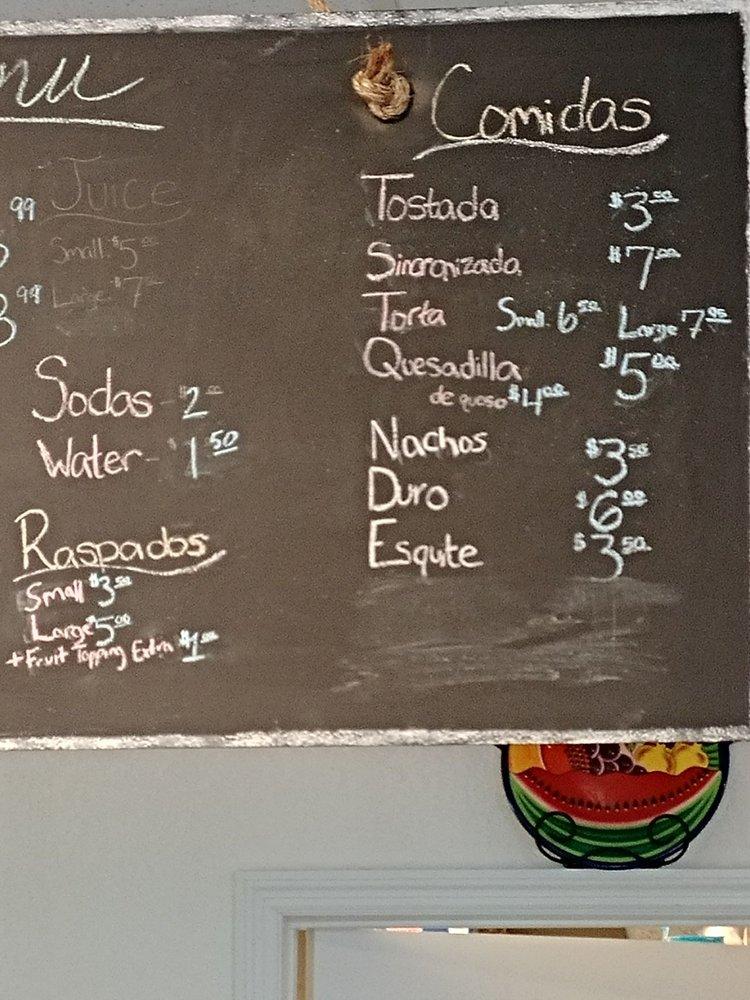 nu
99 Juice
Small $5 00
99 Large $7
Sodas - $2
Water - $1 50
Raspados
Small $3 50
Large $5 00
+ Fruit Topping Extra $1 00
Comidas
Tostada $3 00
Sincronizada $7 00
Torta Small 6 50 Large 7 95
Quesadilla $5 00
de queso $4 00
Nachos $3 50
Duro $6 00
Esqute $3 50